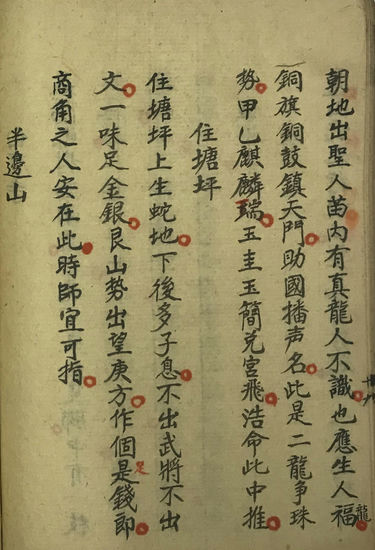 朝地出聖人苗內有真龍人不識也應生人福龍
銅旗銅鼓鎮天門助國播声名此是二龍爭珠
勢甲乙麒麟瑞玉圭玉簡兌宮飛浩命此中推
住塘坪
住塘坪上生蛇地下後多子息不出武將不出
文一味足金銀艮山勢出望庚方作個是錢郎
商角之人安在此時師宜可指
半邊山